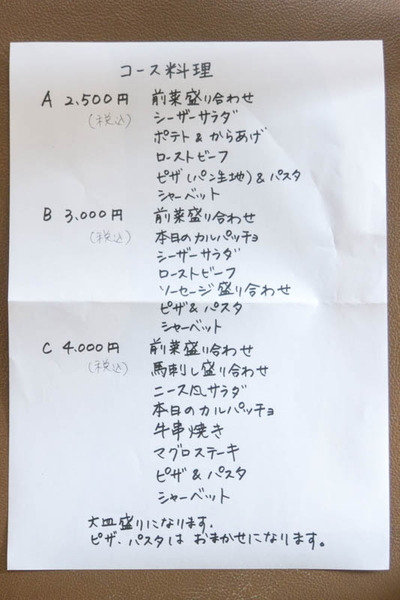 コース料理
A 2,500円 前菜盛り合わせ
(税込) シーザーサラダ
ポテト&からあげ
ローストビーフ
ピザ(パン生地)&パスタ
シャーベット
B 3,000円 前菜盛り合わせ
(税込) 本日のカルパッチョ
シーザーサラダ
ローストビーフ
ソーセージ盛り合わせ
ピザ&パスタ
シャーベット
C 4,000円 前菜盛り合わせ
(税込) 馬刺し盛り合わせ
ニース風サラダ
本日のカルパッチョ
牛串焼き
マグロステーキ
ピザ&パスタ
シャーベット
大皿盛りになります。
ピザ、パスタは おまかせになります。